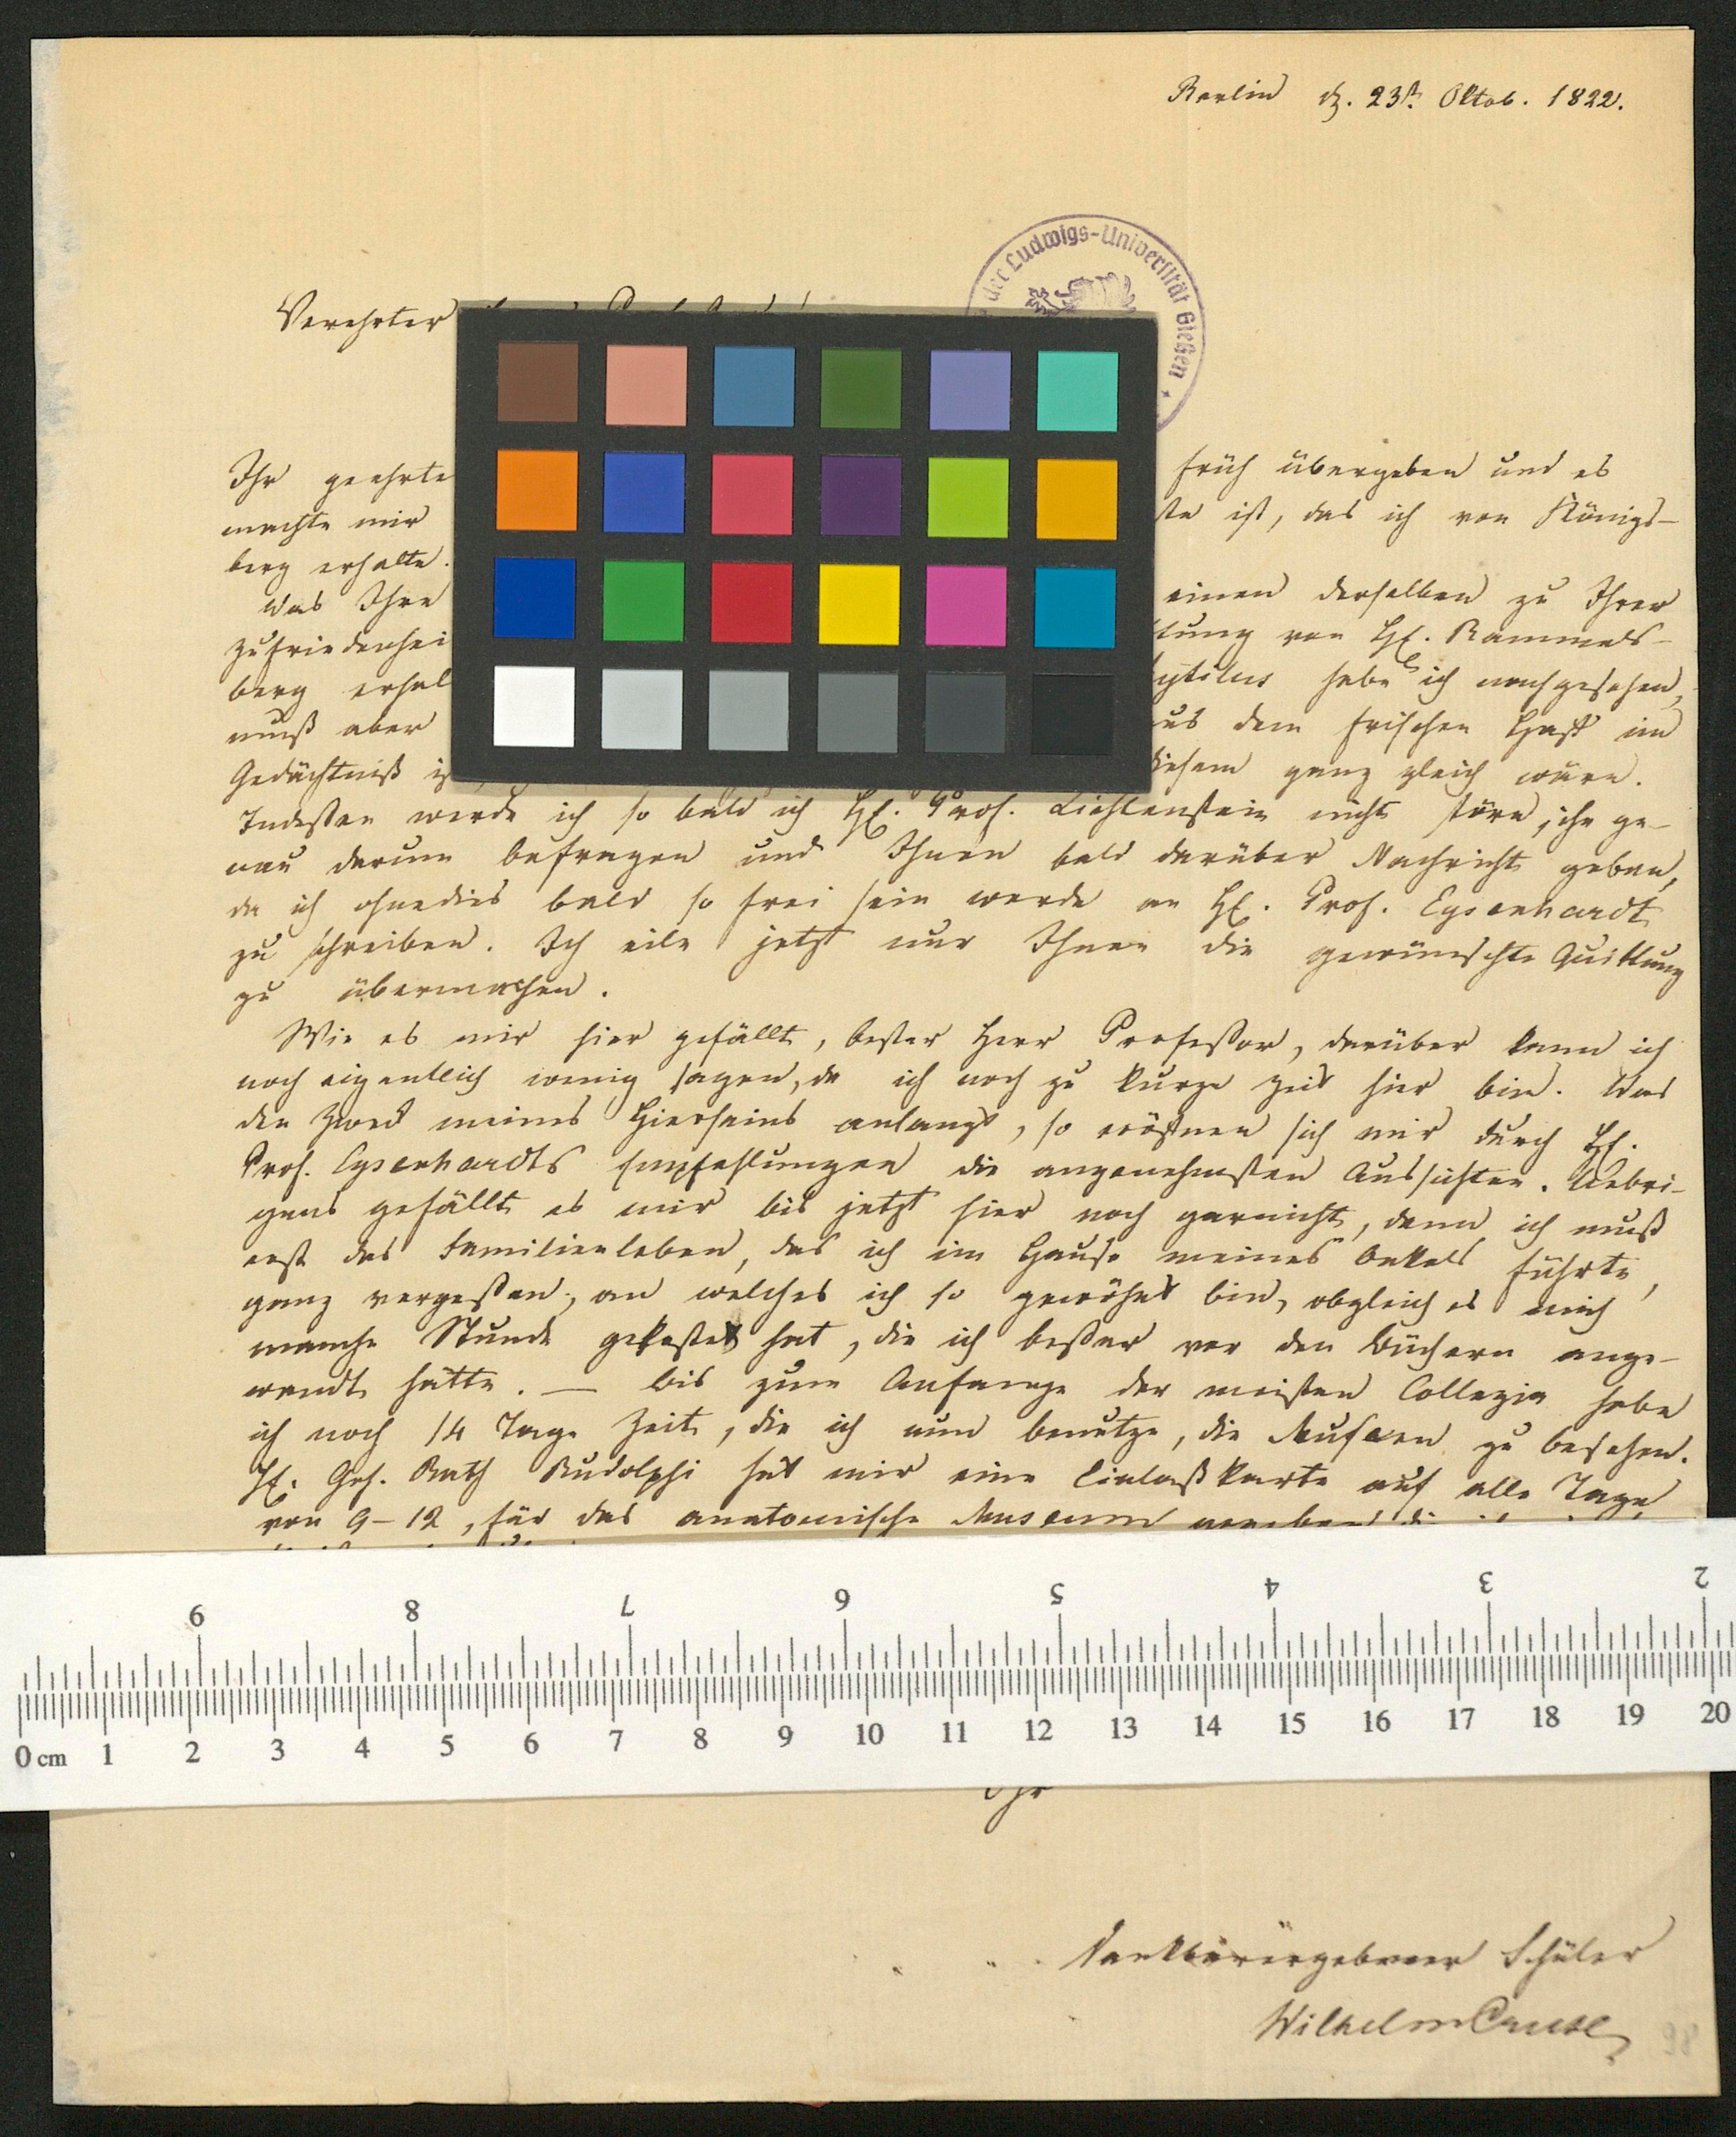 Berlin d. 23st. Oktob. 1822.
der Ludwigs-Universität Gießen
Verehrter
Ihr geehrte früh übergeben und es
machte mir ste ist, das ich von Königs-
berg erhalte.
Was Ihre einen derselben zu Ihrer
Zufriedenhei tung von H. Rammels-
berg erhal ytilus habe ich nachgesehen,
muß aber aus dem frischen Haff im
Gedächtniß diesem ganz gleich wäre.
Indessen werde ich so bald ich H. Prof. Lichtenstein nicht störe, ihn ge-
nau darum befragen und Ihnen bald darüber Nachricht geben,
da ich ohnedies bald so frei sein werde an H. Prof. Eysenhardt
zu schreiben. Ich eile jetzt nur Ihnen die gewünschte Quittung
zu übermachen.
Wie es mir hier gefällt, bester Herr Professor, darüber kann ich
noch eigentlich wenig sagen, da ich noch zu kurze Zeit hier bin. Was
den Zweck meines Hierseins anlangt, so eröffnen sich mir durch H.
Prof. Eysenhardts Empfehlungen die angenehmsten Aussichten. Uebri-
gens gefällt es mir bis jetzt hier noch garnicht, denn ich muß
erst das Familienleben, das ich im Hause meines Onkels führte,
ganz vergessen, an welches ich so gewöhnt bin, obgleich es mich
manche Stunde gekostet hat, die ich besser vor den Büchern ange-
wandt hätte. — Bis zum Anfange der meisten Collegia habe
ich noch 14 Tage Zeit, die ich nun benutze, die Museen zu besehen.
H. Geh. Rath Rudolphi hat mir eine Einlaßkarte auf alle Tage
von 9–12, für das anatomische Museum gegeben
6 8 7 6 5 4 3 2
0 cm 1 2 3 4 5 6 7 8 9 10 11 12 13 14 15 16 17 18 19 20
Ihr
dankbar ergebener Schüler
Wilhelm Cruse